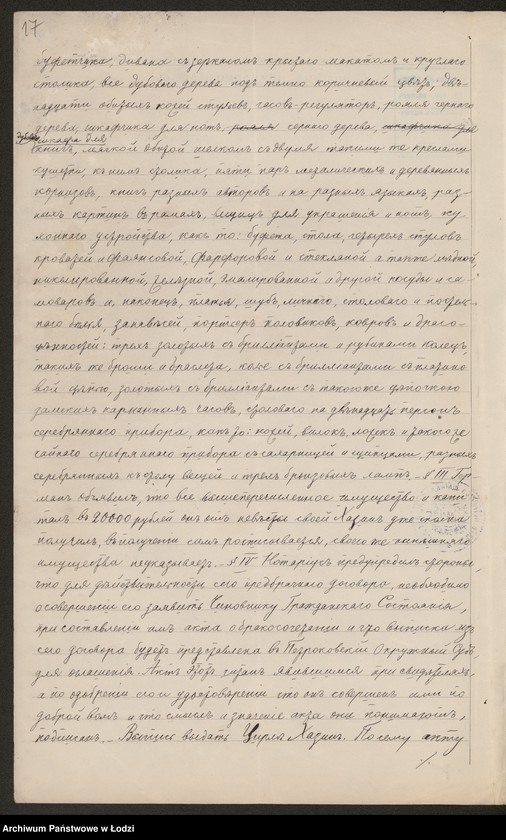 17
буфетчика, дивана съ зеркаломъ крытаго макатомъ и круглаго
столика, все дубоваго дерева подъ темно коричневый цвѣтъ; две-
надцати обитыхъ кожей стульевъ, часовъ-регуляторъ, рояля чернаго
дерева, шкафчика для нотъ, рояля чернаго дерева, шкафчика для
шкафа для
книгъ, мягкой обитой шелкомъ съ двумя такими же креслами
кушетки, къ нимъ столика, пяти паръ металическихъ и деревянныхъ
карнизовъ, книгъ разныхъ авторовъ и на разныхъ языкахъ, раз-
ныхъ картинъ въ рамахъ, вещицъ для украшенія и комн. ку-
хоннаго устройства, какъ то: буфета, стола, четырехъ стульевъ
кроватей и фаянсовой, фарфоровой и стекляной а также мѣдной,
никелированной, желѣзной, эмалированной и другой посуды и са-
моваровъ и, наконецъ, платья, шубъ, личнаго, столоваго и постель-
наго бѣлья, занавѣсей, портьеръ половиковъ, ковровъ и драго-
цѣнностей: трехъ золотыхъ съ брилліантами и рубинами колецъ,
такихъ же броши и браслета, колье съ брилліантами съ платино-
вой цѣпью, золотыхъ съ брилліантами съ таковою же цѣпочкою
дамскихъ карманныхъ часовъ, столоваго на двѣнадцать персонъ
серебряннаго прибора, какъ то: ножей, вилокъ, ложекъ и таковаго же
чайнаго серебряннаго прибора съ сахарницей и щипцами, разныхъ
серебрянныхъ къ столу вещей и трехъ бронзовыхъ лампъ. - § III. Гер-
манъ объявилъ, что все вышеперечисленное имущество и капи-
талъ въ 20000 рублей онъ отъ невѣсты своей Хазанъ уже сполна
получилъ, въ полученіи симъ росписывается, своего же наличнаго
имущества неуказываетъ. - § IV. Нотаріусъ предупредилъ стороны,
что для дѣйствительности сего предбрачнаго договора, необходимо
о совершеніи его заявить Чиновнику Гражданскаго Состоянія,
при составленіи имъ акта о бракосочетаніи и что выписка изъ
сего договора будетъ представлена въ Петроковскій Окружный Судъ,
для оглашенія. Актъ этотъ читанъ явившимся при свидѣтеляхъ,
а по одобреніи его и удостовѣреніи что онъ совершенъ ими по
доброй волѣ и что смыслъ и значеніе акта они понимаютъ,
подписанъ. - Выпись выдать Цирлѣ Хазанъ. По сему акту
./.
Archiwum Państwowe w Łodzi